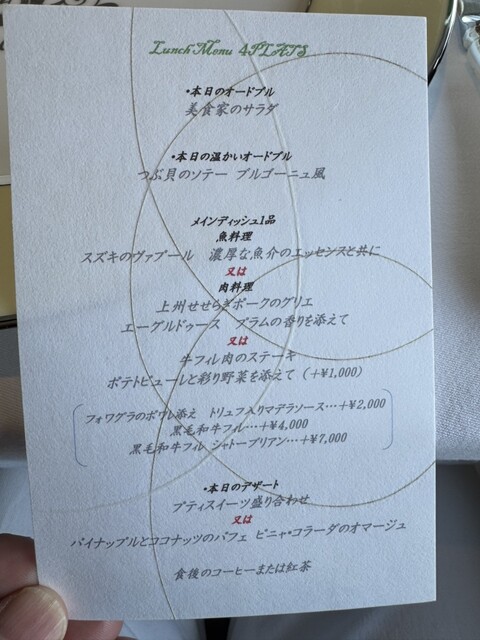 Lunch Menu 4PLATS
・本日のオードブル
美食家のサラダ
・本日の温かいオードブル
つぶ貝のソテー ブルゴーニュ風
メインディッシュ1品
魚料理
スズキのヴァプール 濃厚な魚介のエッセンスと共に
又は
肉料理
上州せせらぎポークのグリエ
エーグルドゥース プラムの香りを添えて
又は
牛フィレ肉のステーキ
ポテトピューレと彩り野菜を添えて (+¥1,000)
フォワグラのポワレ添え トリュフ入りマデラソース…+¥2,000
黒毛和牛フィレ…+¥4,000
黒毛和牛フィレ シャトーブリアン…+¥7,000
・本日のデザート
プティスイーツ盛り合わせ
又は
パイナップルとココナッツのパフェ ピニャ・コラーダのオマージュ
食後のコーヒーまたは紅茶